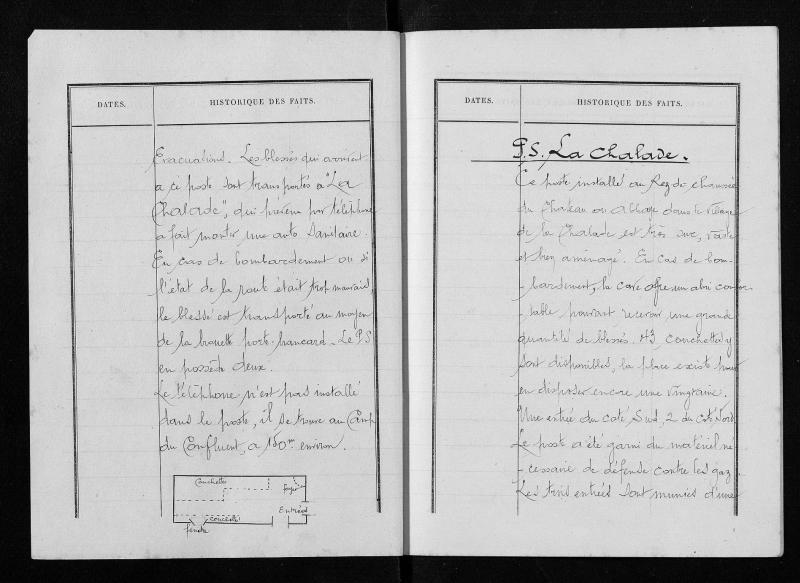 DATES.
HISTORIQUE DES FAITS.
Evacuations. Les blessés qui arrivent
a ce poste sont transportés à "La
Chalade", qui prévenu par téléphone
a fait monter une auto sanitaire.
En cas de bombardement ou si
l'état de la route était trop mauvais,
le blessé est transporté au moyen
de la brouette porte-brancard. Le P.S
en possède deux.
Le téléphone n'est pas installé
dans le poste, il se trouve au Camp
du Confluent, a 150m environ.
Couchettes
foyer
Entrées
couchettes
fenêtre
DATES.
HISTORIQUE DES FAITS.
P.S. La Chalade.
Ce poste installé au Rez de chaussée
du Chateau ou Abbaye dans le village
de la Chalade est très sur, vaste
et bien aménagé. En cas de bom-
bardement, la cave offre un abri confor-
-table pouvant recevoir une grande
quantité de blessés. 43 couchettes y
sont disponibles, la place existe pour
en disposer encore une vingtaine.
Une entrée du coté Sud, 2 du coté Nord
Le poste a été garni du matériel né
-cessaire de défense contre les gaz.
Les trois entrées sont munies d'une